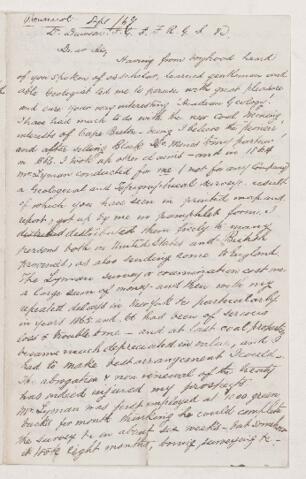 Sept /67
Dr. Dawson F. G. S. F. R. G. S. &c
Dear Sir,
Having from boyhood heard
of you spoken of as scholar, learned gentleman and
able Geologist led me to peruse with great pleasure
and care your very interesting Acadian Geology.
I have had much to do with the new Coal Mining
interests of Cape Breton - being I believe the pioneer
and after selling Black Mines & my portion
in 1863. I took up other claims - and in 1864
Mr Lyman conducted for me (not for any Company)
a Geological and Topographical survey - result
of which you have seen in printed map and
report, got up by me in pamphlet form. I
distributed them freely to many
persons both in United States and British
provinces, as also sending some to England.
The Lyman survey & examination cost me
a large sum of money - and then with my
repeated delays in New York &c particularly
in years 1865 and 66 had been of serious
loss & trouble to me - and at last coal property
became much depreciated in value, and I
had to make best arrangement I could -
The abrogation & non renewal of the treaty
has injured my prospects.
Mr Lyman was first employed at $1000 green
backs per month thinking he could complete
the survey &c in about six weeks - but somehow
it took eight months, boring surveying &c -